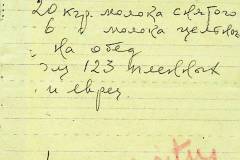 20 кгр. молока снятого
6 " молока цельного
на обед
123 пленных
и евреи